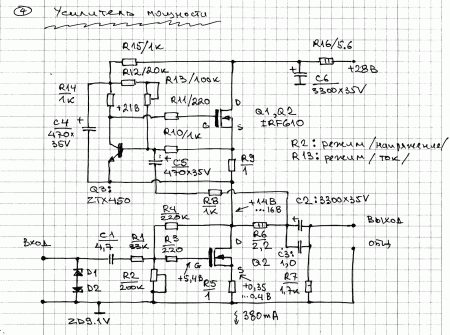 4 Усилитель мощности
R15/1k
R16/5.6
R12/20k
R13/100k
+28В
R14
1k
C6
3300×35V
+21В
R11/220
D
Q1, Q2
IRF610
C4
470×
35V
G
S
R10/1k
R2: режим/напряжение/
R13: режим/ток/
C5
470×35V
R9
1
Q3:
ZTX450
R8
1k
+14В
...16В
C2: 3300×35V
R4
220k
ВЫХОД
ВХОД
C1
4,7
R1
33k
R3
220
D
R6
2,2
C3
1,0
ОБЩ
G
Q2
+5,4В
S
D1
D2
R2
200k
R5
1
+0,35
...0.4В
R7
1,7k
ZD9.1V
380mA